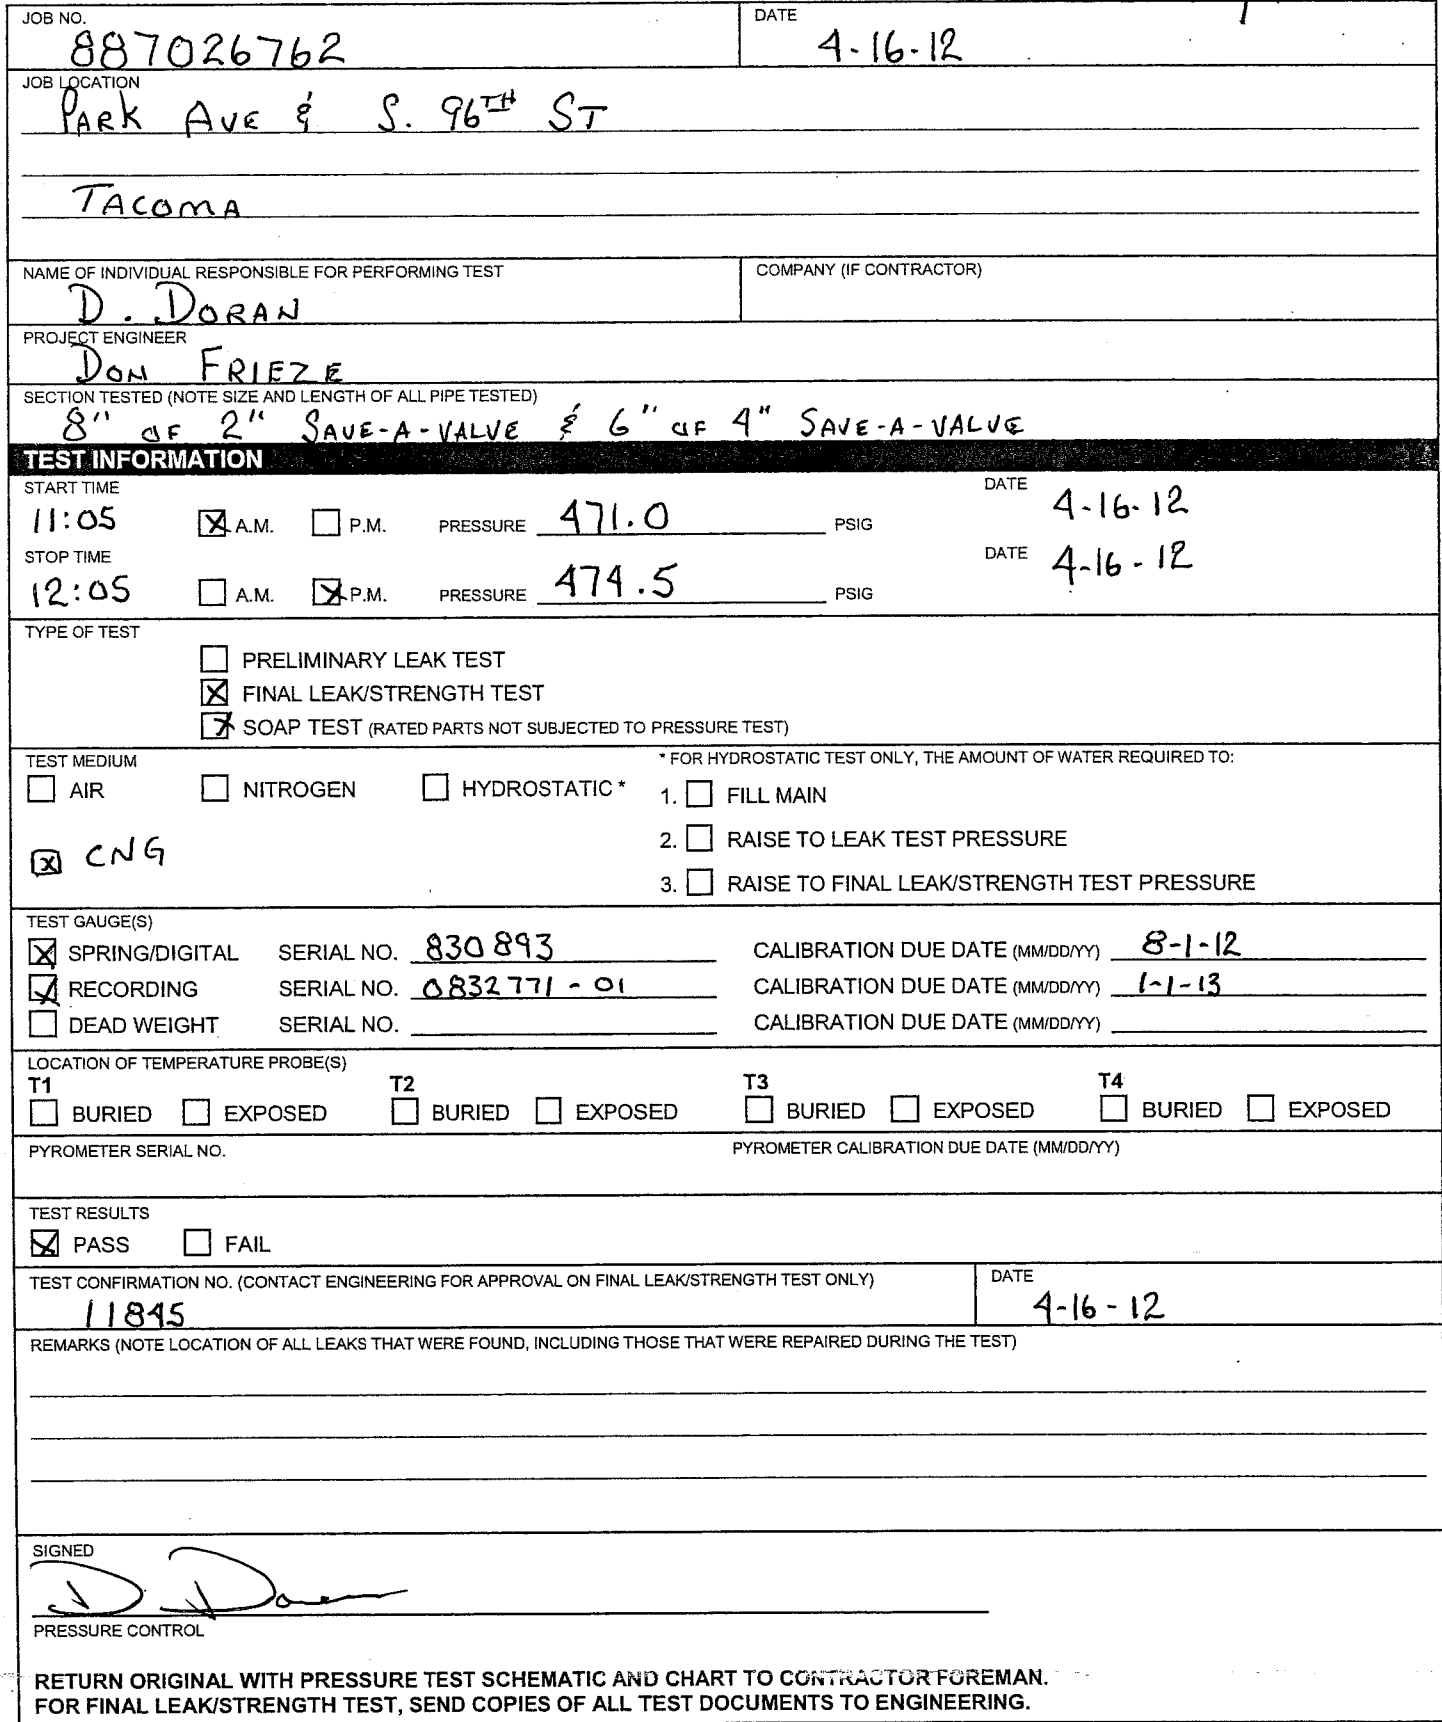 JOB NO. DATE
887026762 4-16-12
JOB LOCATION
PARK AVE & S. 96TH ST
TACOMA
NAME OF INDIVIDUAL RESPONSIBLE FOR PERFORMING TEST COMPANY (IF CONTRACTOR)
D. DORAN
PROJECT ENGINEER
DON FRIEZE
SECTION TESTED (NOTE SIZE AND LENGTH OF ALL PIPE TESTED)
8" OF 2" SAVE-A-VALVE & 6" OF 4" SAVE-A-VALVE
TEST INFORMATION
START TIME DATE
11:05 A.M. P.M. PRESSURE 471.0 PSIG 4-16-12
STOP TIME DATE
12:05 A.M. P.M. PRESSURE 474.5 PSIG 4-16-12
TYPE OF TEST
PRELIMINARY LEAK TEST
FINAL LEAK/STRENGTH TEST
SOAP TEST (RATED PARTS NOT SUBJECTED TO PRESSURE TEST)
TEST MEDIUM * FOR HYDROSTATIC TEST ONLY, THE AMOUNT OF WATER REQUIRED TO:
AIR NITROGEN HYDROSTATIC * 1. FILL MAIN
2. RAISE TO LEAK TEST PRESSURE
CNG
3. RAISE TO FINAL LEAK/STRENGTH TEST PRESSURE
TEST GAUGE(S)
SPRING/DIGITAL SERIAL NO. 830893 CALIBRATION DUE DATE (MM/DD/YY) 8-1-12
RECORDING SERIAL NO. 0832771-01 CALIBRATION DUE DATE (MM/DD/YY) 1-1-13
DEAD WEIGHT SERIAL NO. CALIBRATION DUE DATE (MM/DD/YY)
LOCATION OF TEMPERATURE PROBE(S)
T1 T2 T3 T4
BURIED EXPOSED BURIED EXPOSED BURIED EXPOSED BURIED EXPOSED
PYROMETER SERIAL NO. PYROMETER CALIBRATION DUE DATE (MM/DD/YY)
TEST RESULTS
PASS FAIL
TEST CONFIRMATION NO. (CONTACT ENGINEERING FOR APPROVAL ON FINAL LEAK/STRENGTH TEST ONLY) DATE
11845 4-16-12
REMARKS (NOTE LOCATION OF ALL LEAKS THAT WERE FOUND, INCLUDING THOSE THAT WERE REPAIRED DURING THE TEST)
SIGNED
D. Doran
PRESSURE CONTROL
RETURN ORIGINAL WITH PRESSURE TEST SCHEMATIC AND CHART TO CONTRACTOR FOREMAN.
FOR FINAL LEAK/STRENGTH TEST, SEND COPIES OF ALL TEST DOCUMENTS TO ENGINEERING.